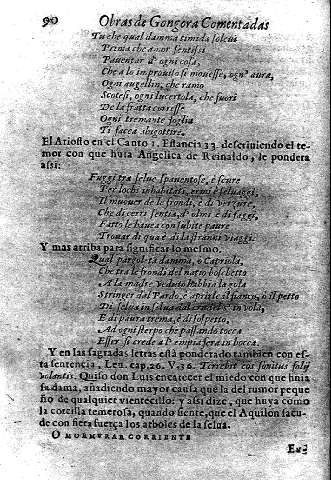 90 Obras de Gongora Comentadas
Tu che qual damma timida solevi
Prima che amor sentissi
Paventar d' ogni cosa,
Che a lo improviso se movesse, ogn' aura,
Ogni augellin, che ramo
Scotesi, ogni lucertola, che fuori
De la fratta corresse
Ogni tremante foglia
Ti facea sbigottire.
El Ariosto en el Canto 1. Estancia 33. descriuiendo el te-
mor con que huìa Angelica de Reinaldo, le pondera
assi:
Fuggi tra selue spauentose, è scure
Per lochi inhabitati, ermi è seluaggi,
Il mouer de le frondi, e di verzure,
Che di cerri sentia, d' olmi e di faggi,
Fatto le hauea con subite paure
Trouar di qua è di là strani viaggi.
Y mas arriba para significar lo mesmo.
Qual pargoletta damma, ò Capriola,
Che tra le frondi del natio boschetto
A la madre veduto habbia la gola
Stringer dal Pardo, è aprirle il fianco, ò il petto
Di selua in selua dal crudel s' inuola,
E di paura trema, è di sospetto,
Ad ogni sterpo che passando tocca
Esser si crede à l' empia fera in bocca.
Y en las sagradas letras està ponderado tambien con es-
ta sentencia, Leu. cap. 26. V. 36. Terrebit eos sonitus folij
volantis. Quiso don Luis encarecer el miedo con que huia
su dama, añadiendo mayor causa que la del rumor peque
ño de qualquier vientecillo: y assi dize, que huya como
la corcilla temerosa, quando siente, que el Aquilon sacu-
de con fiera fuerça los arboles de la selua.
O MURMURAR CORRIENTE